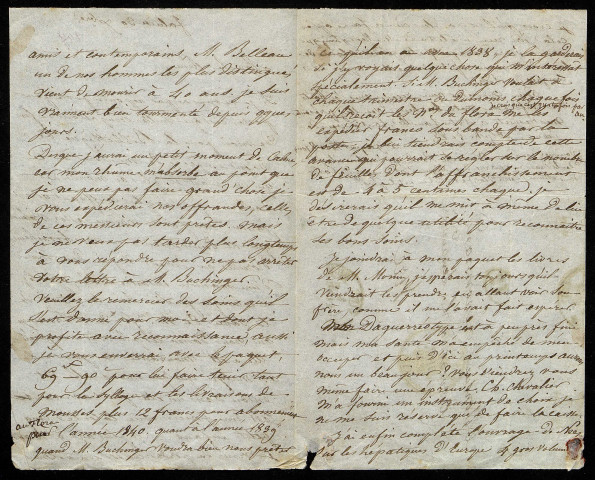 amis et contemporains M. Belleau
un de nos hommes les plus distingués
vient de mourir à 40 ans, je suis
vraiment bien tourmenté depuis quelques
jours.
Dès que j'aurai un petit moment de calme
car mon rhume m'absorbe au point que
je ne peux pas faire grand chose je
vous expédierai vos offrandes, celles
de ces messieurs sont prêtes, mais
je ne veux pas tarder plus longtemps
à vous répondre pour ne pas arrêter
votre lettre à M. Buchinger.
Veuillez le remercier des soins qu'il
s'est donné pour moi et dont je
profite avec reconnaissance, aussi
je vous enverrai avec le paquet,
69 f 90 pour lui faire tenir tant
pour la Sylloge et les livraisons de
mousses, plus 12 francs pour abonnement
au flora
pour l'année 1840, quant à l'année 1839
quand M. Buchinger voudra bien nous prêter
ce qu'il en a 1838, je le garderai
si j'y voyais quelque chose qui m'intéressat
spécialement. Si M. Buchinger voulait à
chaque trimestre ou du moins chaque fois
qu'il reçoit les Nos de flora me les
expédier francs sous bande par la
poste, je lui tiendrais compte de cette
avance qui pourrait se régler sur le nombre
de feuilles dont l'affranchissement
est de 4 à 5 centimes chaque, je
désirerais qu'il me mit à même de lui
être de quelque utilité pour reconnaître
ses bons soins.
Je joindrai à mon paquet les livres
de M. Monin, j'espérais toujours qu'il
viendrait les prendre, en allant voir son
frère comme il m'avait fait espérer.
Mon Daguerreotype est à peu près fini
mais ma santé m'a empêché de m'en
occuper et puis d'ici au printemps aurons
nous un beau jour? vous viendrez vous
même faire une épreuve, Ch. Chevalier
m'a fourni un instrument de choix, je
ne me suis réservé que de faire la caisse.
J'ai enfin complété l'ouvrage de Nees
sur les hépatiques d'Europe 4 gros volumes